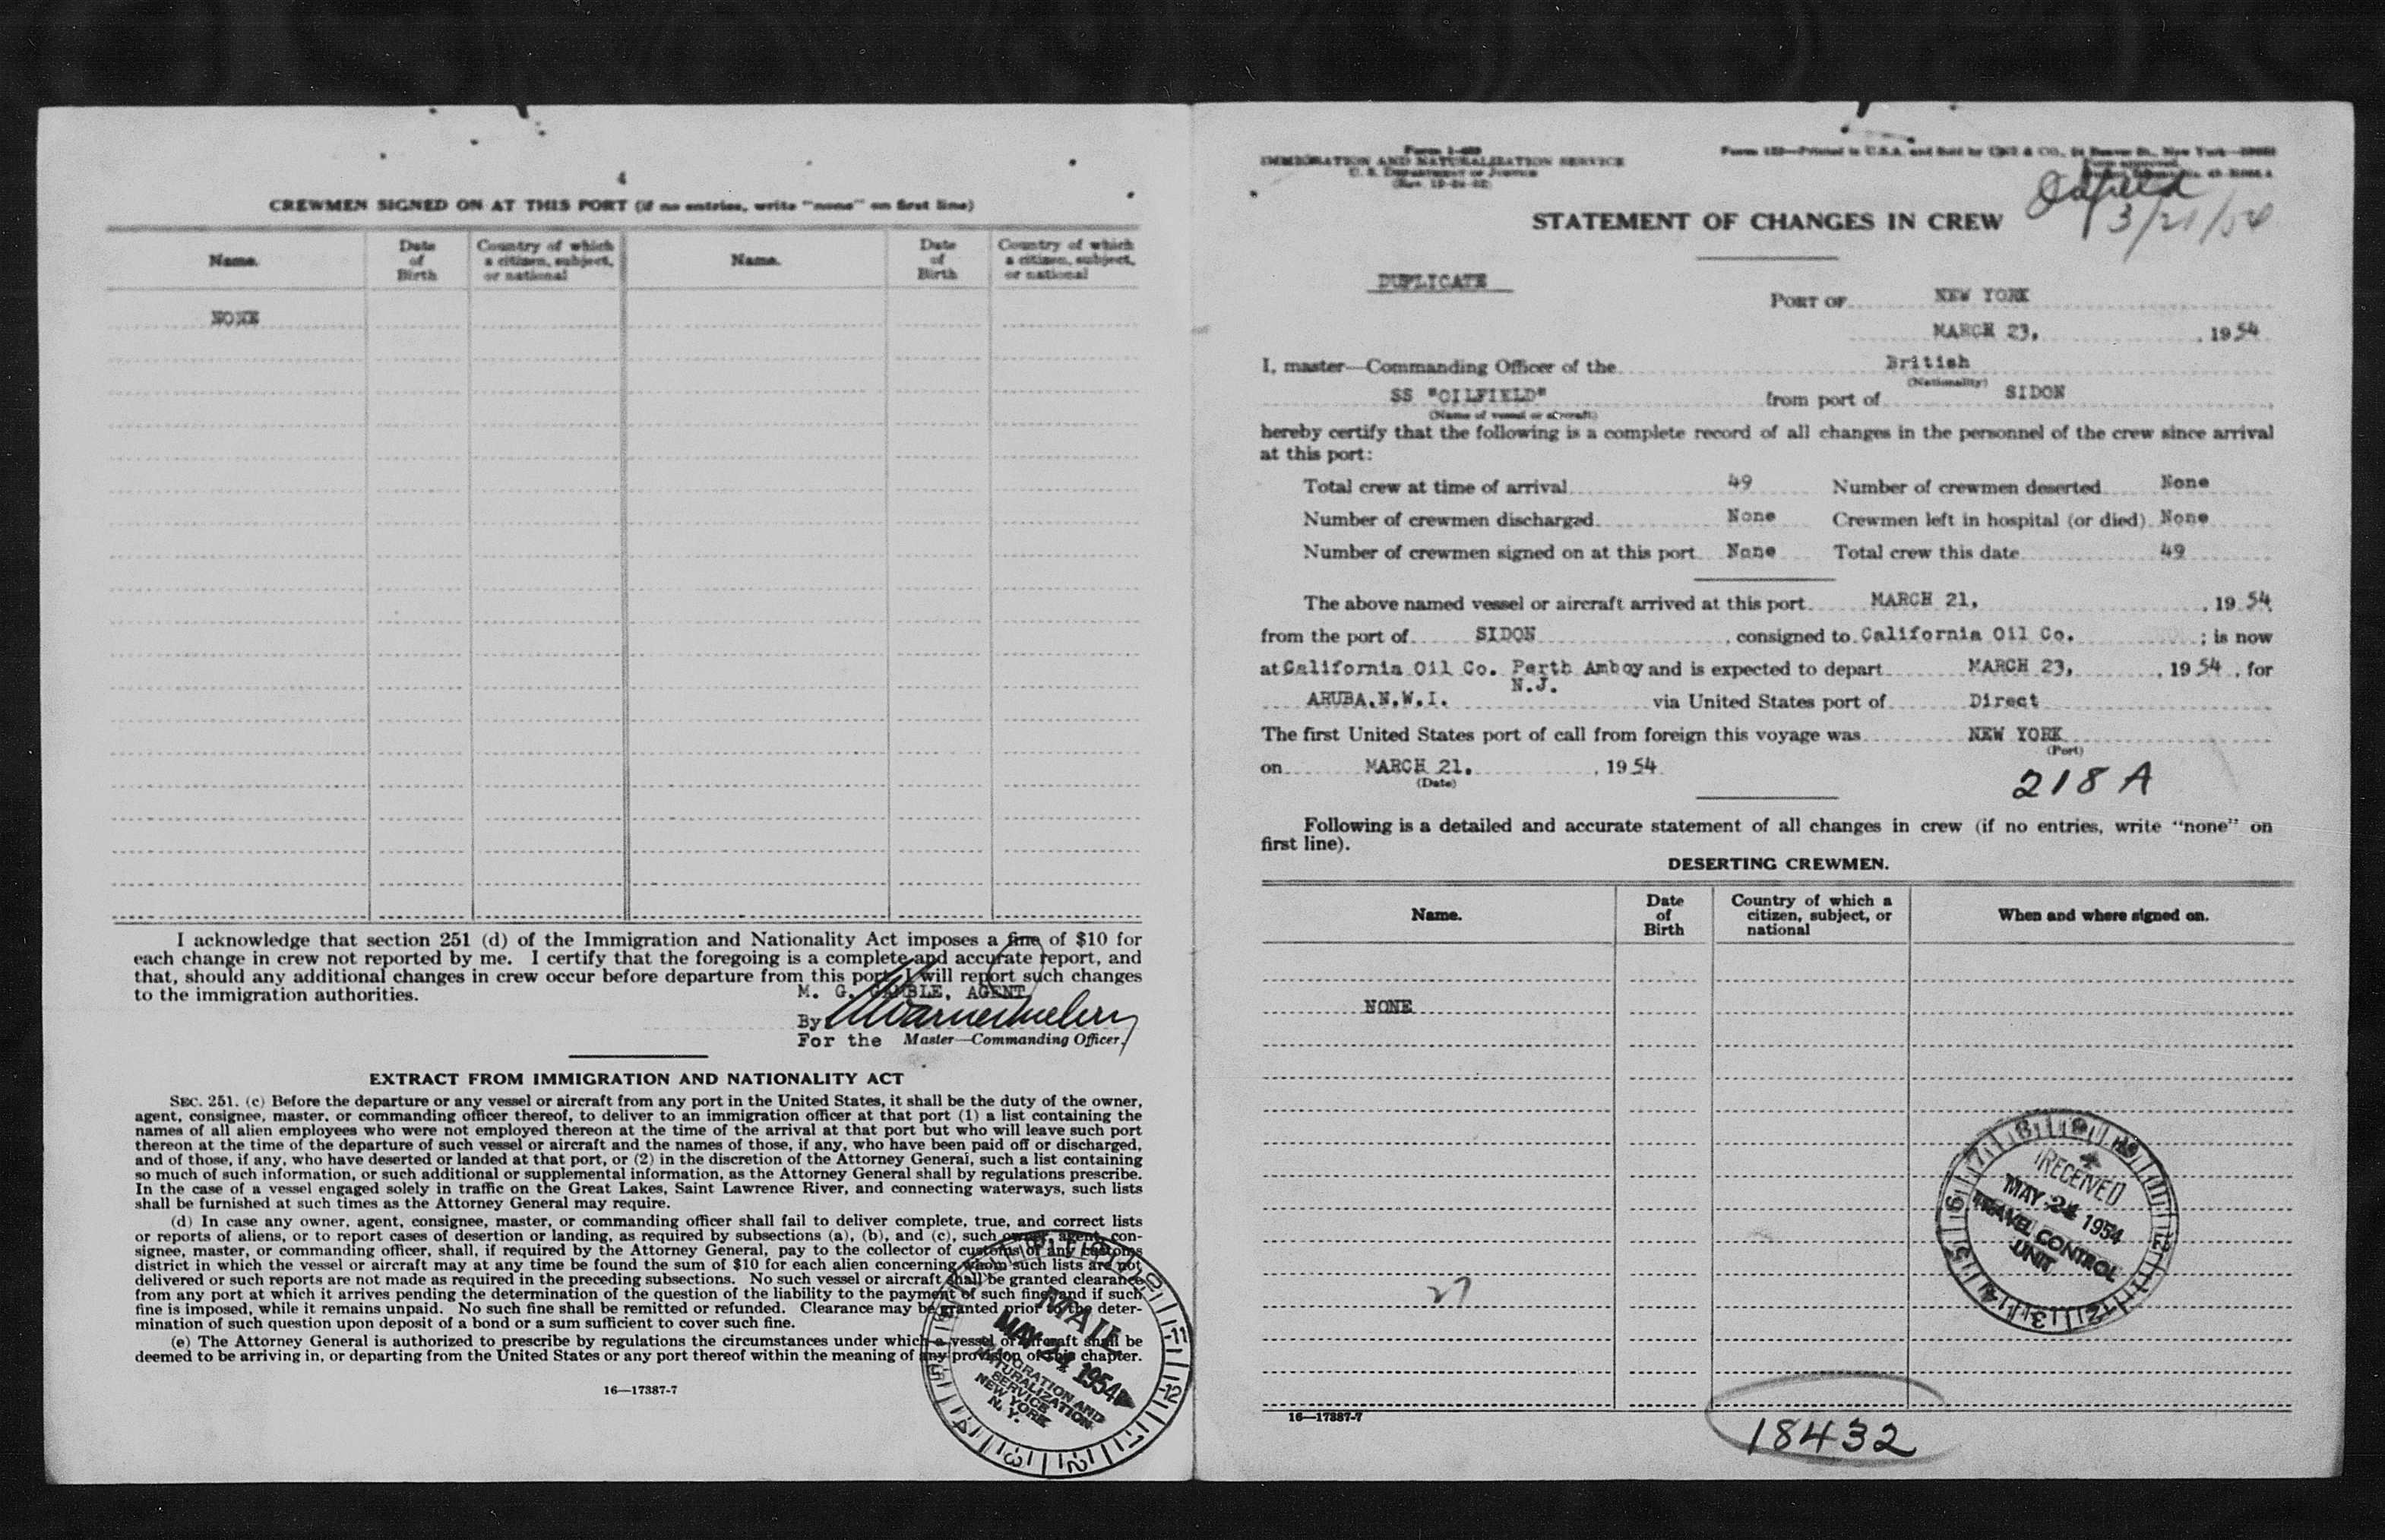 4
CREWMEN SIGNED ON AT THIS PORT (if no entries, write "none" on first line)
Name. Date of Birth Country of which a citizen, subject, or national Name. Date of Birth Country of which a citizen, subject, or national
NONE
I acknowledge that section 251 (d) of the Immigration and Nationality Act imposes a fine of $10 for
each change in crew not reported by me. I certify that the foregoing is a complete and accurate report, and
that, should any additional changes in crew occur before departure from this port, I will report such changes
to the immigration authorities.
M. G. GAMBLE, AGENT
By
For the Master—Commanding Officer.
EXTRACT FROM IMMIGRATION AND NATIONALITY ACT
SEC. 251. (c) Before the departure or any vessel or aircraft from any port in the United States, it shall be the duty of the owner,
agent, consignee, master, or commanding officer thereof, to deliver to an immigration officer at that port (1) a list containing the
names of all alien employees who were not employed thereon at the time of the arrival at that port but who will leave such port
thereon at the time of the departure of such vessel or aircraft and the names of those, if any, who have been paid off or discharged,
and of those, if any, who have deserted or landed at that port, or (2) in the discretion of the Attorney General, such a list containing
so much of such information, or such additional or supplemental information, as the Attorney General shall by regulations prescribe.
In the case of a vessel engaged solely in traffic on the Great Lakes, Saint Lawrence River, and connecting waterways, such lists
shall be furnished at such times as the Attorney General may require.
(d) In case any owner, agent, consignee, master, or commanding officer shall fail to deliver complete, true, and correct lists
or reports of aliens, or to report cases of desertion or landing, as required by subsections (a), (b), and (c), such owner, agent, con-
signee, master, or commanding officer, shall, if required by the Attorney General, pay to the collector of customs of any customs
district in which the vessel or aircraft may at any time be found the sum of $10 for each alien concerning whom such lists are not
delivered or such reports are not made as required in the preceding subsections. No such vessel or aircraft shall be granted clearance
from any port at which it arrives pending the determination of the question of the liability to the payment of such fine, and if such
fine is imposed, while it remains unpaid. No such fine shall be remitted or refunded. Clearance may be granted prior to the deter-
mination of such question upon deposit of a bond or a sum sufficient to cover such fine.
(e) The Attorney General is authorized to prescribe by regulations the circumstances under which a vessel or aircraft shall be
deemed to be arriving in, or departing from the United States or any port thereof within the meaning of any provision of this chapter.
16—17387-7
MAIL
MAY 24 1954
IMMIGRATION AND
NATURALIZATION
SERVICE
NEW YORK
N. Y.
IMMIGRATION AND NATURALIZATION SERVICE
U. S. DEPARTMENT OF JUSTICE
Oilfield
3/21/54
STATEMENT OF CHANGES IN CREW
DUPLICATE
PORT OF NEW YORK
MARCH 23, , 1954
I, master—Commanding Officer of the British
(Nationality)
SS "OILFIELD" from port of SIDON
(Name of vessel or aircraft)
hereby certify that the following is a complete record of all changes in the personnel of the crew since arrival
at this port:
Total crew at time of arrival 49 Number of crewmen deserted None
Number of crewmen discharged None Crewmen left in hospital (or died) None
Number of crewmen signed on at this port None Total crew this date 49
The above named vessel or aircraft arrived at this port MARCH 21, , 1954
from the port of SIDON , consigned to California Oil Co. ; is now
at California Oil Co. Perth Amboy and is expected to depart MARCH 23, , 1954 , for
N.J.
ARUBA,N.W.I. via United States port of Direct
The first United States port of call from foreign this voyage was NEW YORK
(Port)
on MARCH 21, , 1954
(Date)
218 A
Following is a detailed and accurate statement of all changes in crew (if no entries, write "none" on
first line).
DESERTING CREWMEN.
Name. Date of Birth Country of which a citizen, subject, or national When and where signed on.
NONE
RECEIVED
MAY 24 1954
TRAVEL CONTROL
UNIT
27
16—17387-7
18432